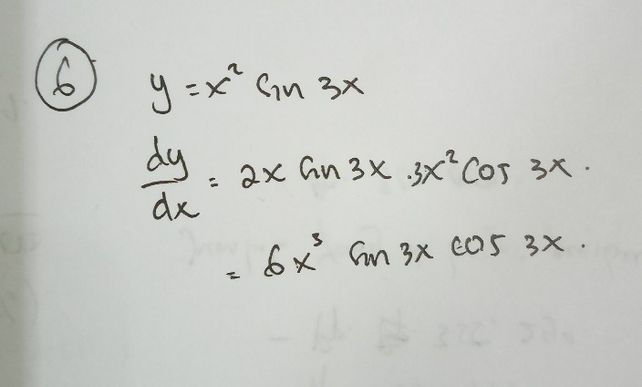 6 y = x² sin 3x
dy/dx = 2x sin 3x . 3x² cos 3x .
= 6x³ sin 3x cos 3x .